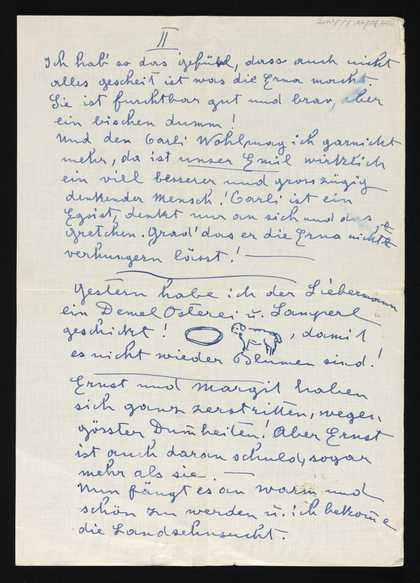 II
Ich hab' so das gefühl, dass auch nicht
alles gescheit ist was die Erna macht
Sie ist furchtbar gut und brav, aber
ein bischen dumm!
Und den Carli Wohlmag ich garnicht
mehr, da ist unser Emil wirklich
ein viel besserer und grosszügig
denkender Mensch! Carli ist ein
Egoist, denkt nur an sich und das
Gretchen. Grad' dass er die Erna nicht
verhungern lässt!
Gestern habe ich der Liebermann
ein Demel Osterei u. Lamperl
geschickt! , damit
es nicht wieder Blumen sind!
Ernst und Margit haben
sich ganz zerstritten, wegen
gösster Dumheiten! Aber Ernst
ist auch daran schuld, sogar
mehr als sie.
Nun fängt es an warm und
schön zu werden u. ich bekome
die Landsehnsucht.